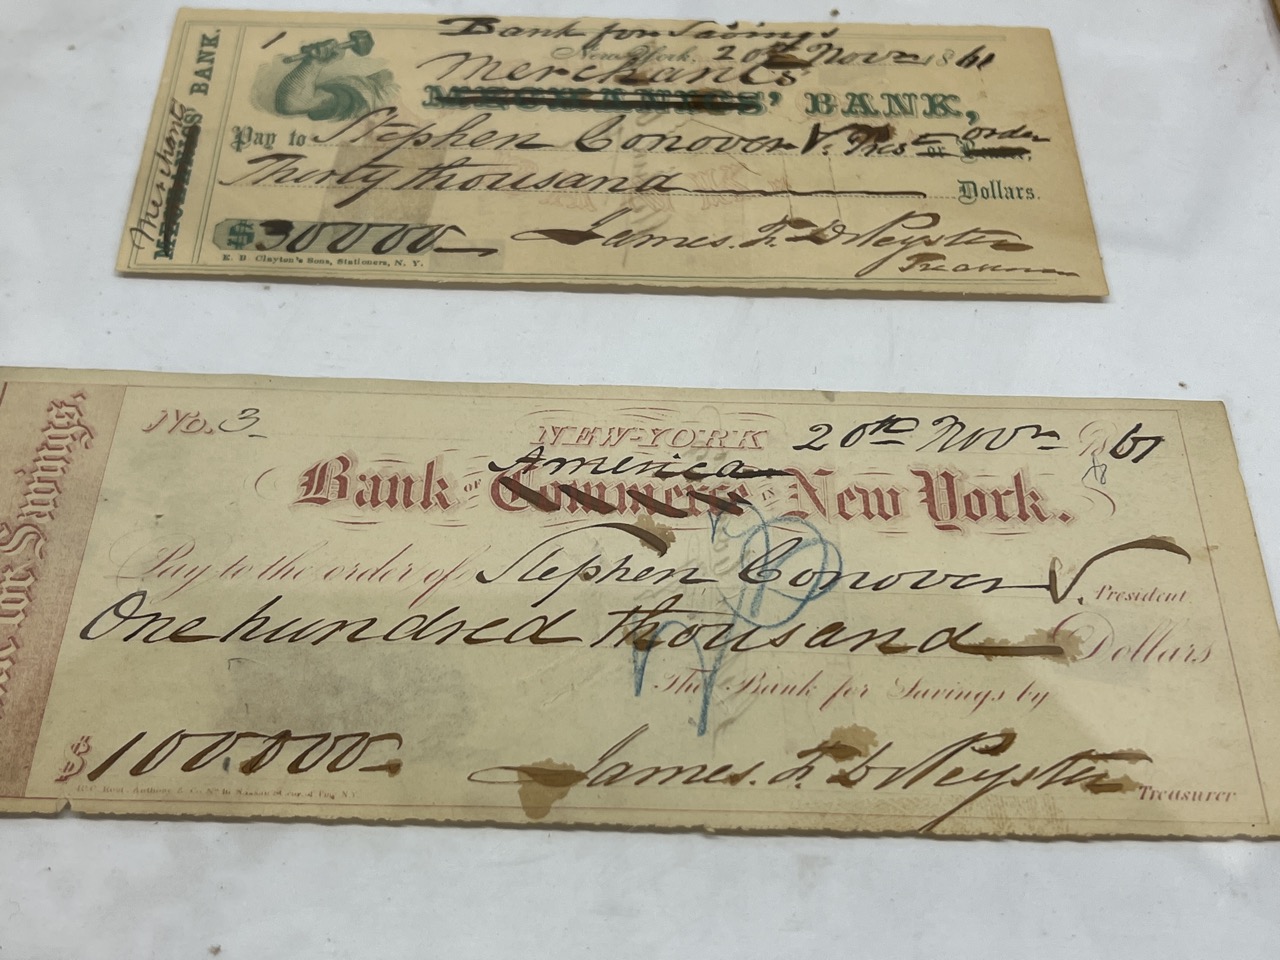 Bank for Savings
1 New-York, 20th Novr 1861
Merchants'
MECHANICS' BANK,
Pay to Stephen Conover V. Pres - order
or Bearer,
Thirty thousand Dollars.
$30000- James. F. DePeyster
Treasurer
E. B. Clayton's Sons, Stationers, N. Y.
Merchants
MECHANICS' BANK.
No. 3 NEW-YORK 20th Novr 1861
America
Bank OF Commerce IN New York.
Pay to the order of Stephen Conover V. President
One hundred thousand Dollars
The Bank for Savings by
$100.000- James. F. DePeyster Treasurer
for Savings,